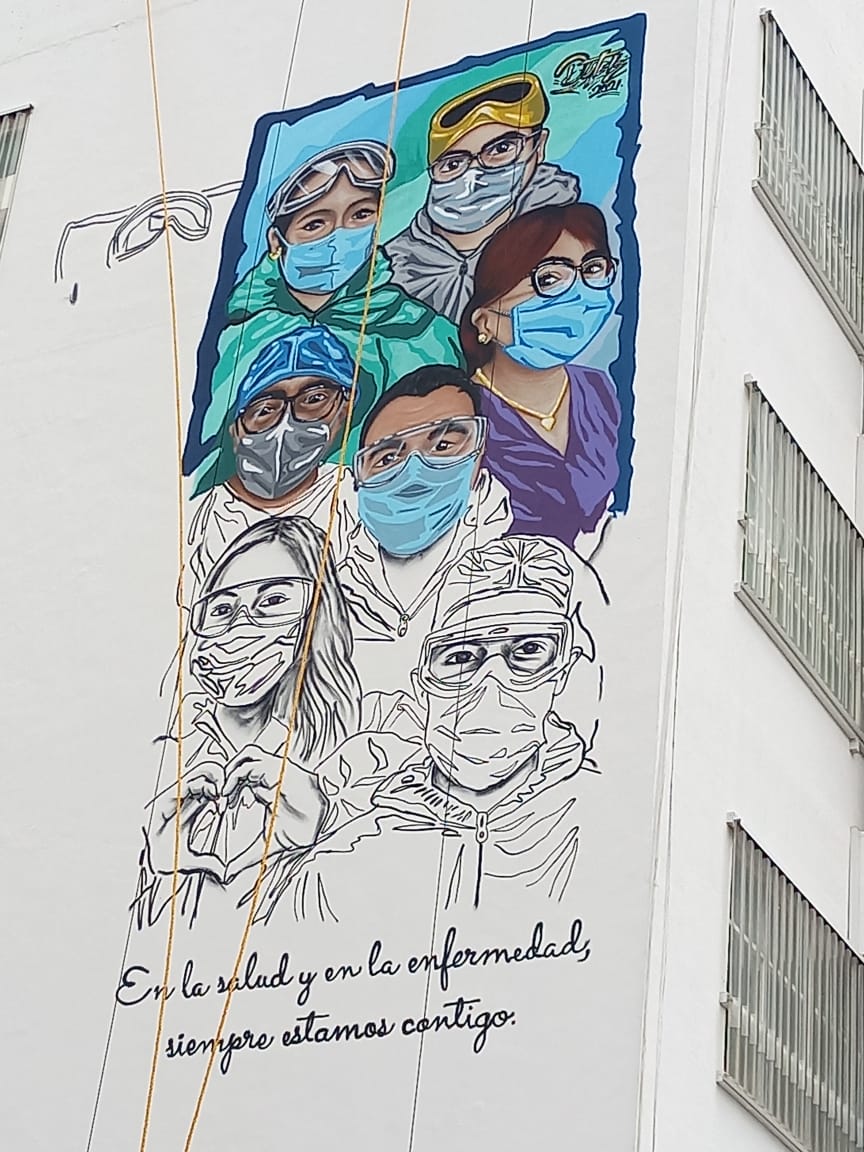 2021
En la salud y en la enfermedad,
siempre estamos contigo.